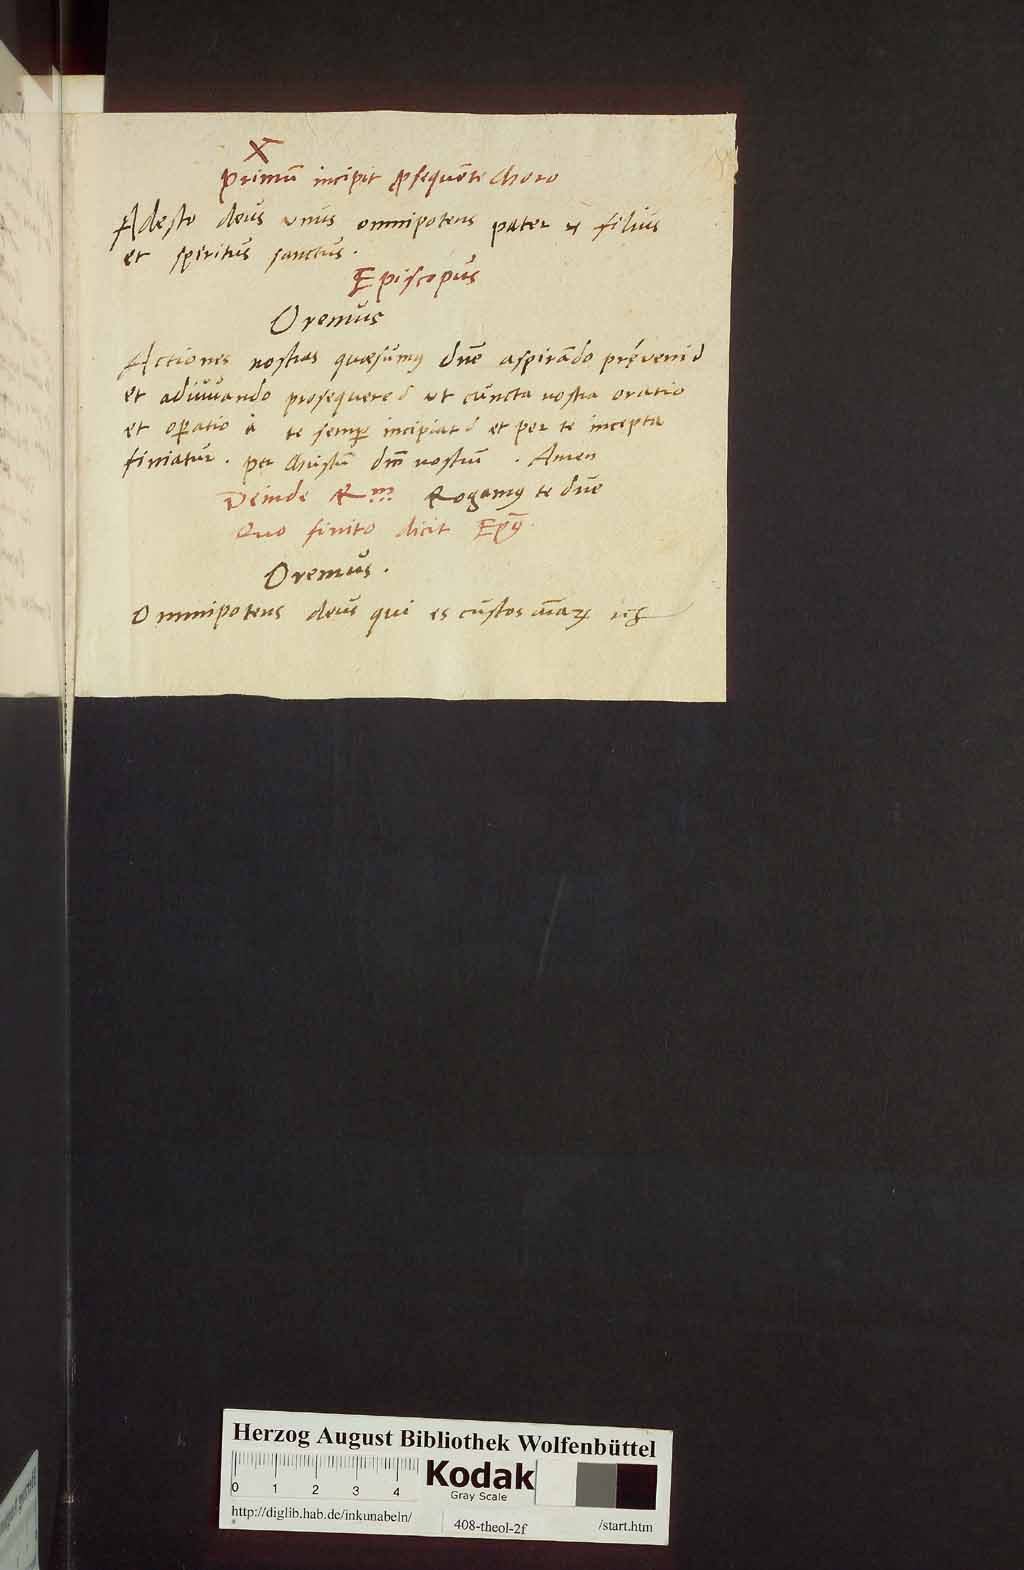 X
Primū incipit ꝓsequēte choro
Adesto deus vnus omnipotens pater et filius
et spiritus sanctus.
Episcopus
Oremus
Actiones nostras quæsumꝰ dn̄e aspirādo prę́veni
et adiuuando prosequere ut cuncta nostra oratio
et oꝑatio à te semꝑ incipiat et per te incepta
finiatur. per Christū dm̄ nostrū. Amen
Deinde Rogamꝰ te dn̄e
Quo finito dicit Ep̄ꝰ.
Oremus.
Omnipotens deus qui es custos
Herzog August Bibliothek Wolfenbüttel
0 1 2 3 4
Kodak
Gray Scale
http://diglib.hab.de/inkunabeln/
408-theol-2f
/start.htm